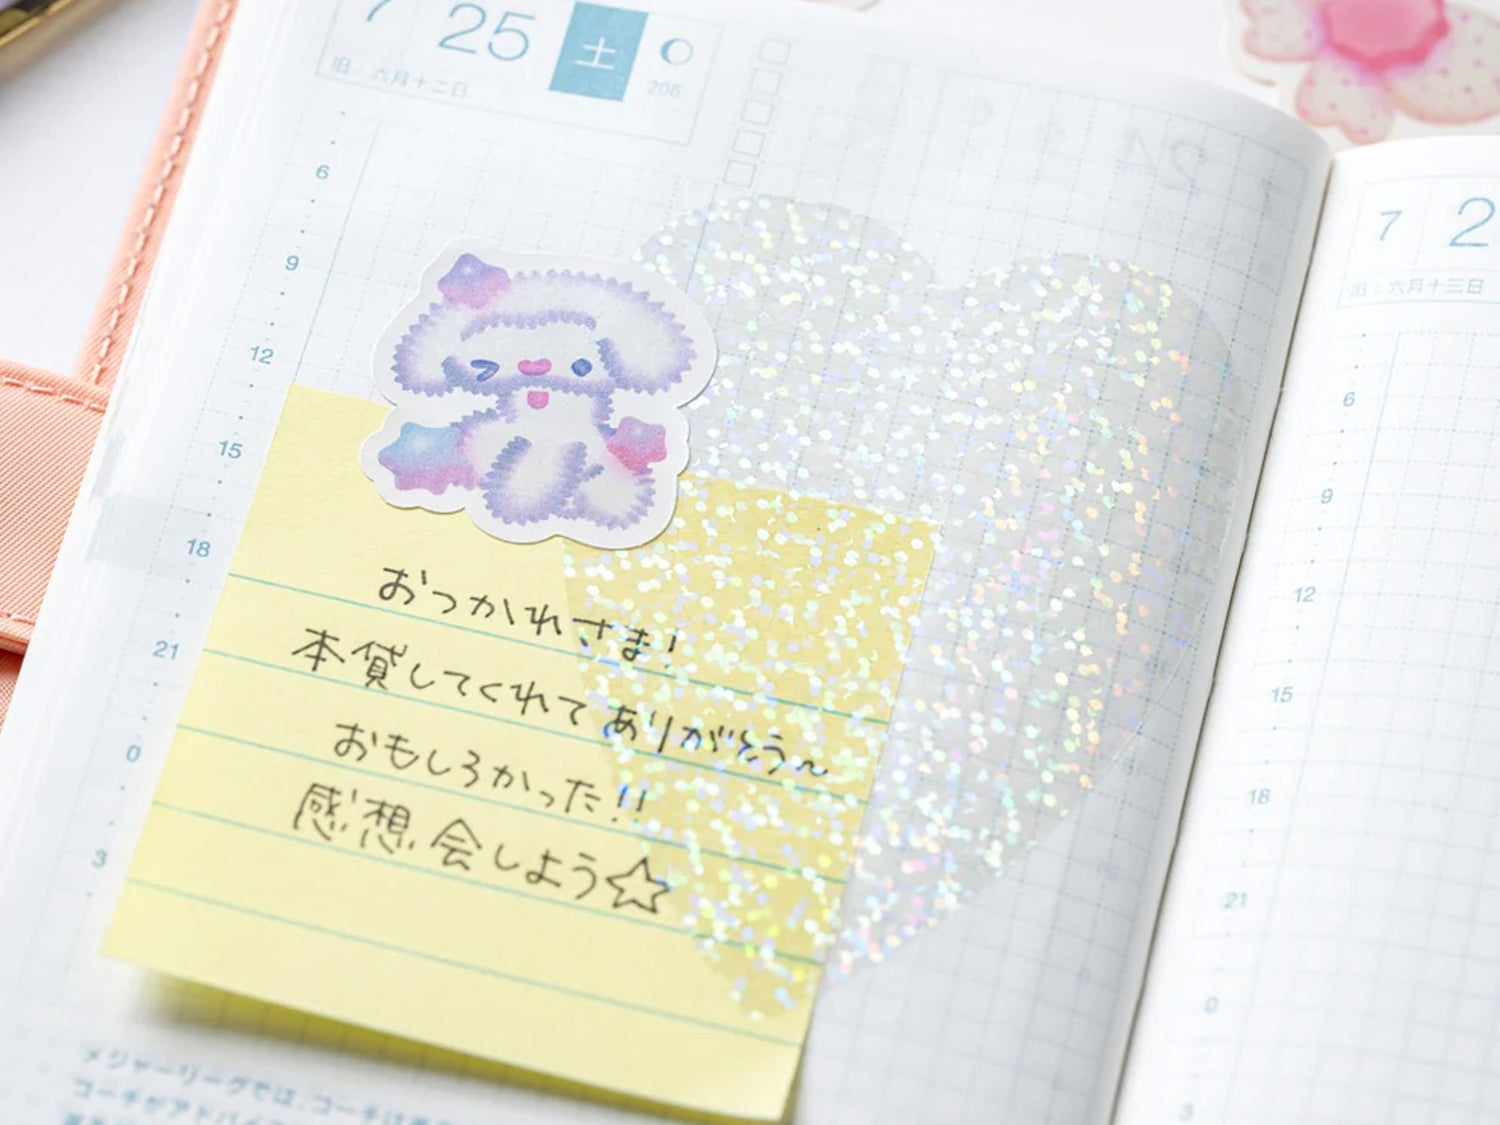 7 25 土
旧：六月十二日 206
6
9
12
15
18
21
0
3
おつかれさま!
本貸してくれてありがとう〜
おもしろかった!!
感想会しよう☆
メジャーリーグでは、コーチは
コーチがアドバイ
24
7 2
旧：六月十三日
6
9
12
15
18
21
0
3